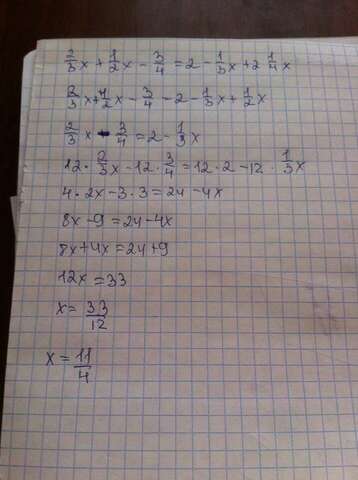 2/3x + 1/2x - 3/4 = 2 - 1/3x + 2 1/4x
2/3x + 1/2x - 3/4 - 2 - 1/3x + 1/2x
2/3x - 3/4 = 2 - 1/3x
12 · 2/3x - 12 · 3/4 = 12 · 2 - 12 · 1/3x
4 · 2x - 3 · 3 = 24 - 4x
8x - 9 = 24 - 4x
8x + 4x = 24 + 9
12x = 33
x = 33/12
x = 11/4